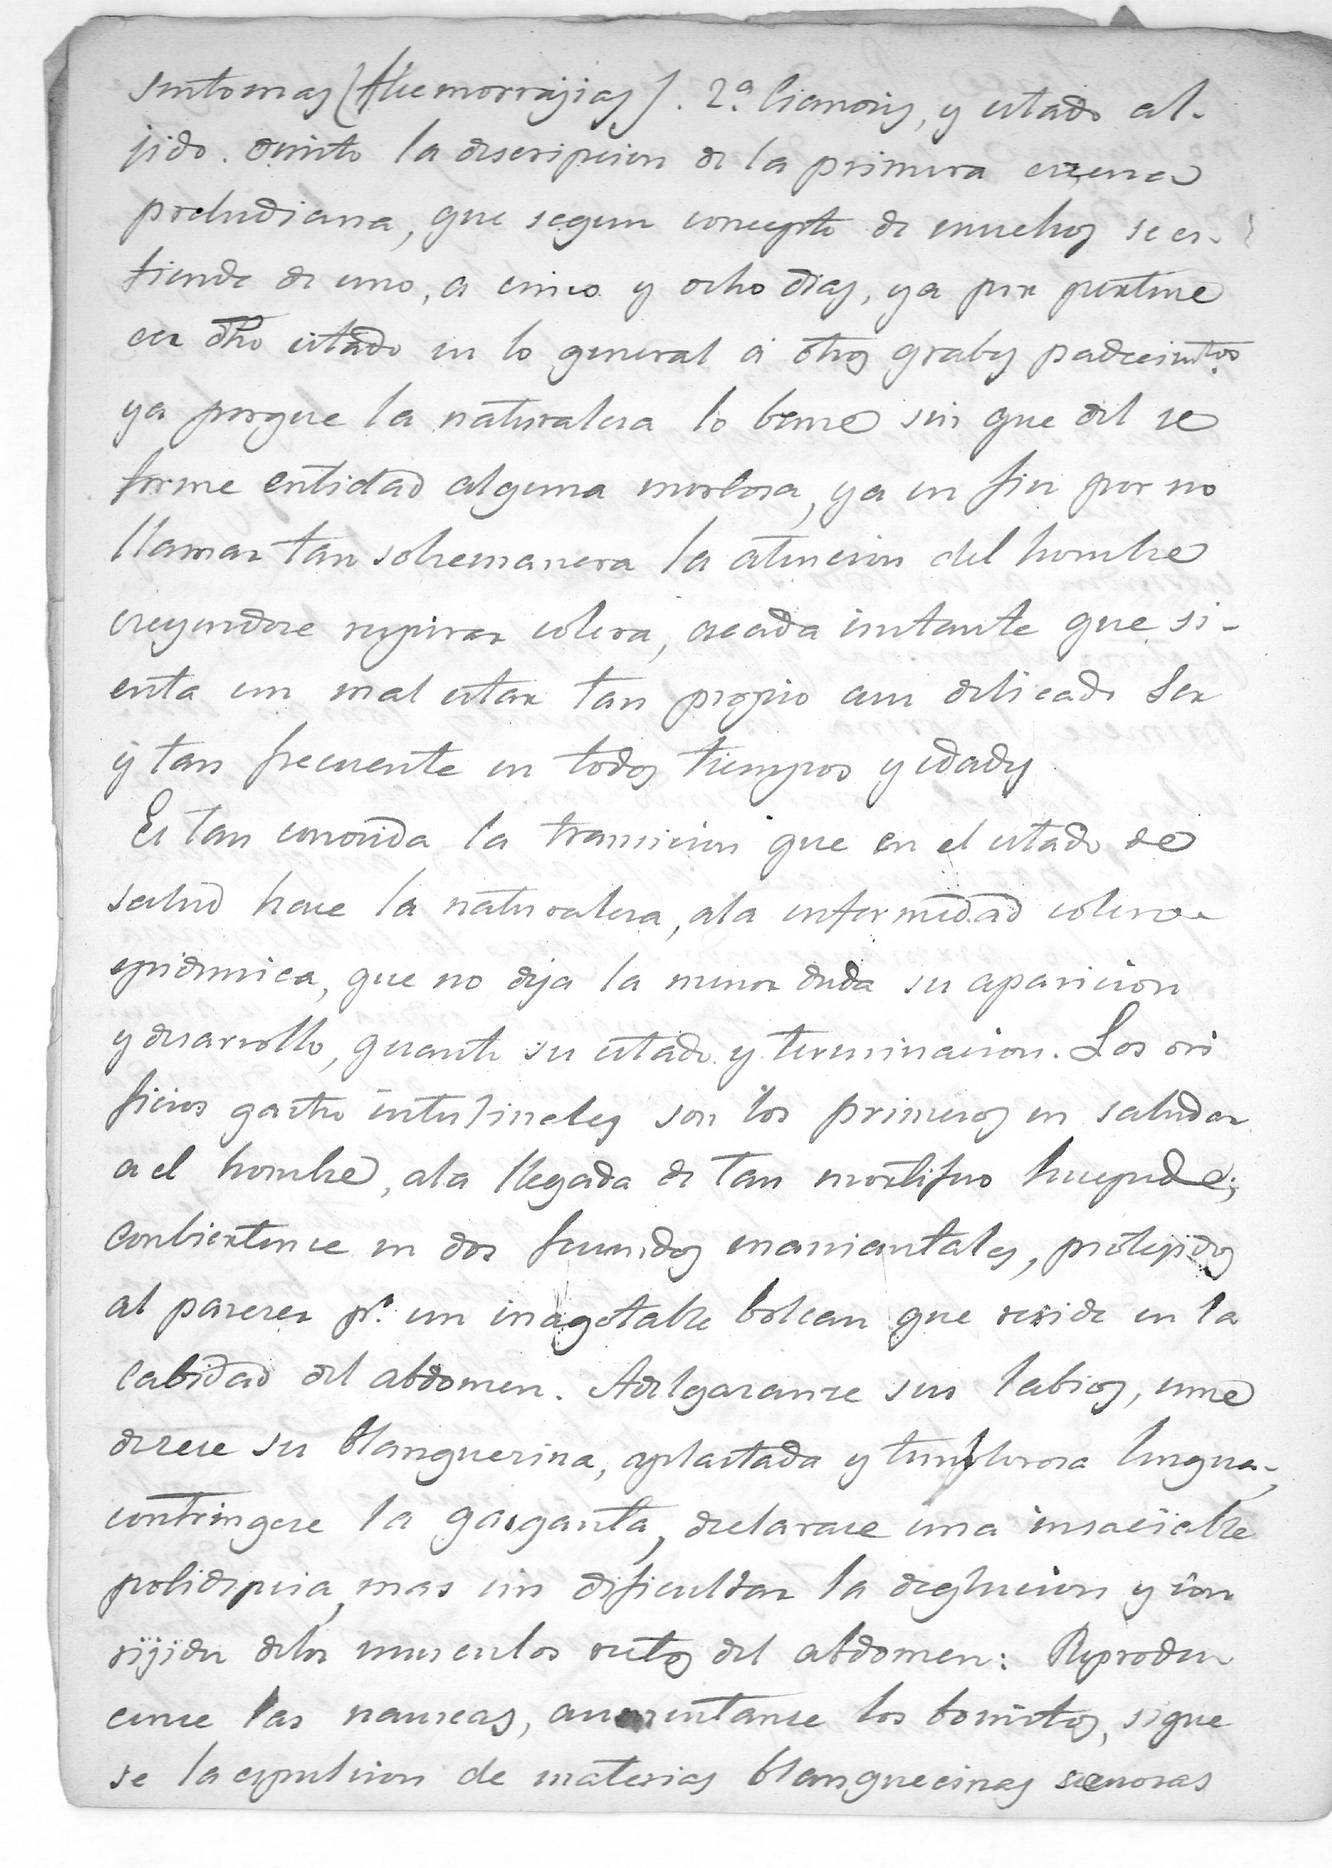 sintomas (Hemorrajias). 2ª Cianosis, y estado al-
jido. Omito la descripcion de la primera escena
preludiana, que segun concepto de muchos se es-
tiende de uno, a cinco y ocho dias, ya por pertene
cer dho estado en lo general á otros grabes padecimtos
ya porque la naturalesa lo bense sin que del se
forme entidad alguna morbosa, ya en fin por no
llamar tan sobremanera la atencion del hombre
creyendose respirar colera, acada instante que si-
enta un mal estar tan propio aun delicado Ser
y tan frecuente en todos tiempos y edades
Es tan conosida la transicion que en el estado de
salud hase la naturalesa, ala enfermedad colera
epidemica, que no deja la menor duda su aparicion
y desarrollo, quanto su estado y terminacion. Los ori
ficios gastro intestinales son los primeros en saludar
a el hombre, ala llegada de tan mortifero huesped;
conbiertense en dos fecundos manantiales, protejidos
al pareser pr. un inagotable bolcan que reside en la
cabidad del abdomen. Adelgasanse sus labios, une
derese su blanquesina, aplastada y temblorosa lengua,
contringese la garganta, declarase una insaciable
polidipsia, mas sin dificultar la deglucion y con
rijides delos musculos rectos del abdomen: Reprodu
cense las nauseas, aumentanse los bomitos, sigue
se la espulsion de materias blanquecinas serosas